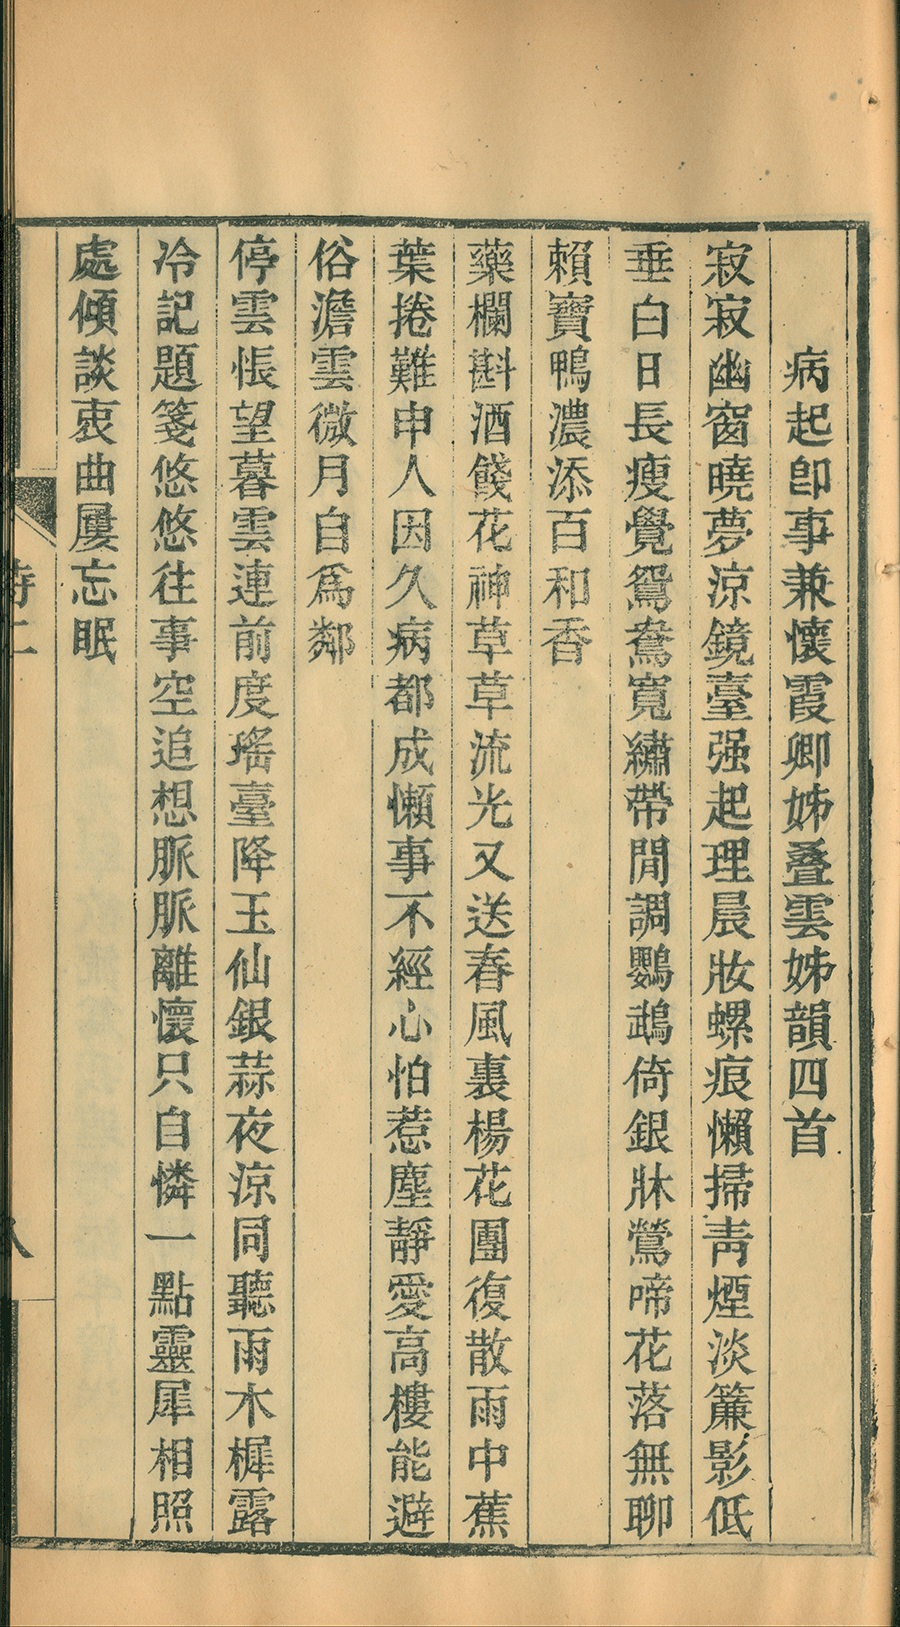 病起卽事兼懷霞卿姊叠雲姊韻四首
寂寂幽窗曉夢涼鏡臺强起理晨妝螺痕懶掃青煙淡簾影低
垂白日長瘦覺鴛鴦寬繡帶閒調鸚鵡倚銀牀鶯啼花落無聊
賴寶鴨濃添百和香
藥欄斟酒餞花神草草流光又送春風裏楊花團復散雨中蕉
葉捲難申人因久病都成懶事不經心怕惹塵靜愛高樓能避
俗澹雲微月自爲鄰
停雲悵望暮雲連前度瑤臺降玉仙銀蒜夜涼同聽雨木樨露
冷記題箋悠悠往事空追想脈脈離懷只自憐一點靈犀相照
處傾談衷曲屢忘眠
詩二
八